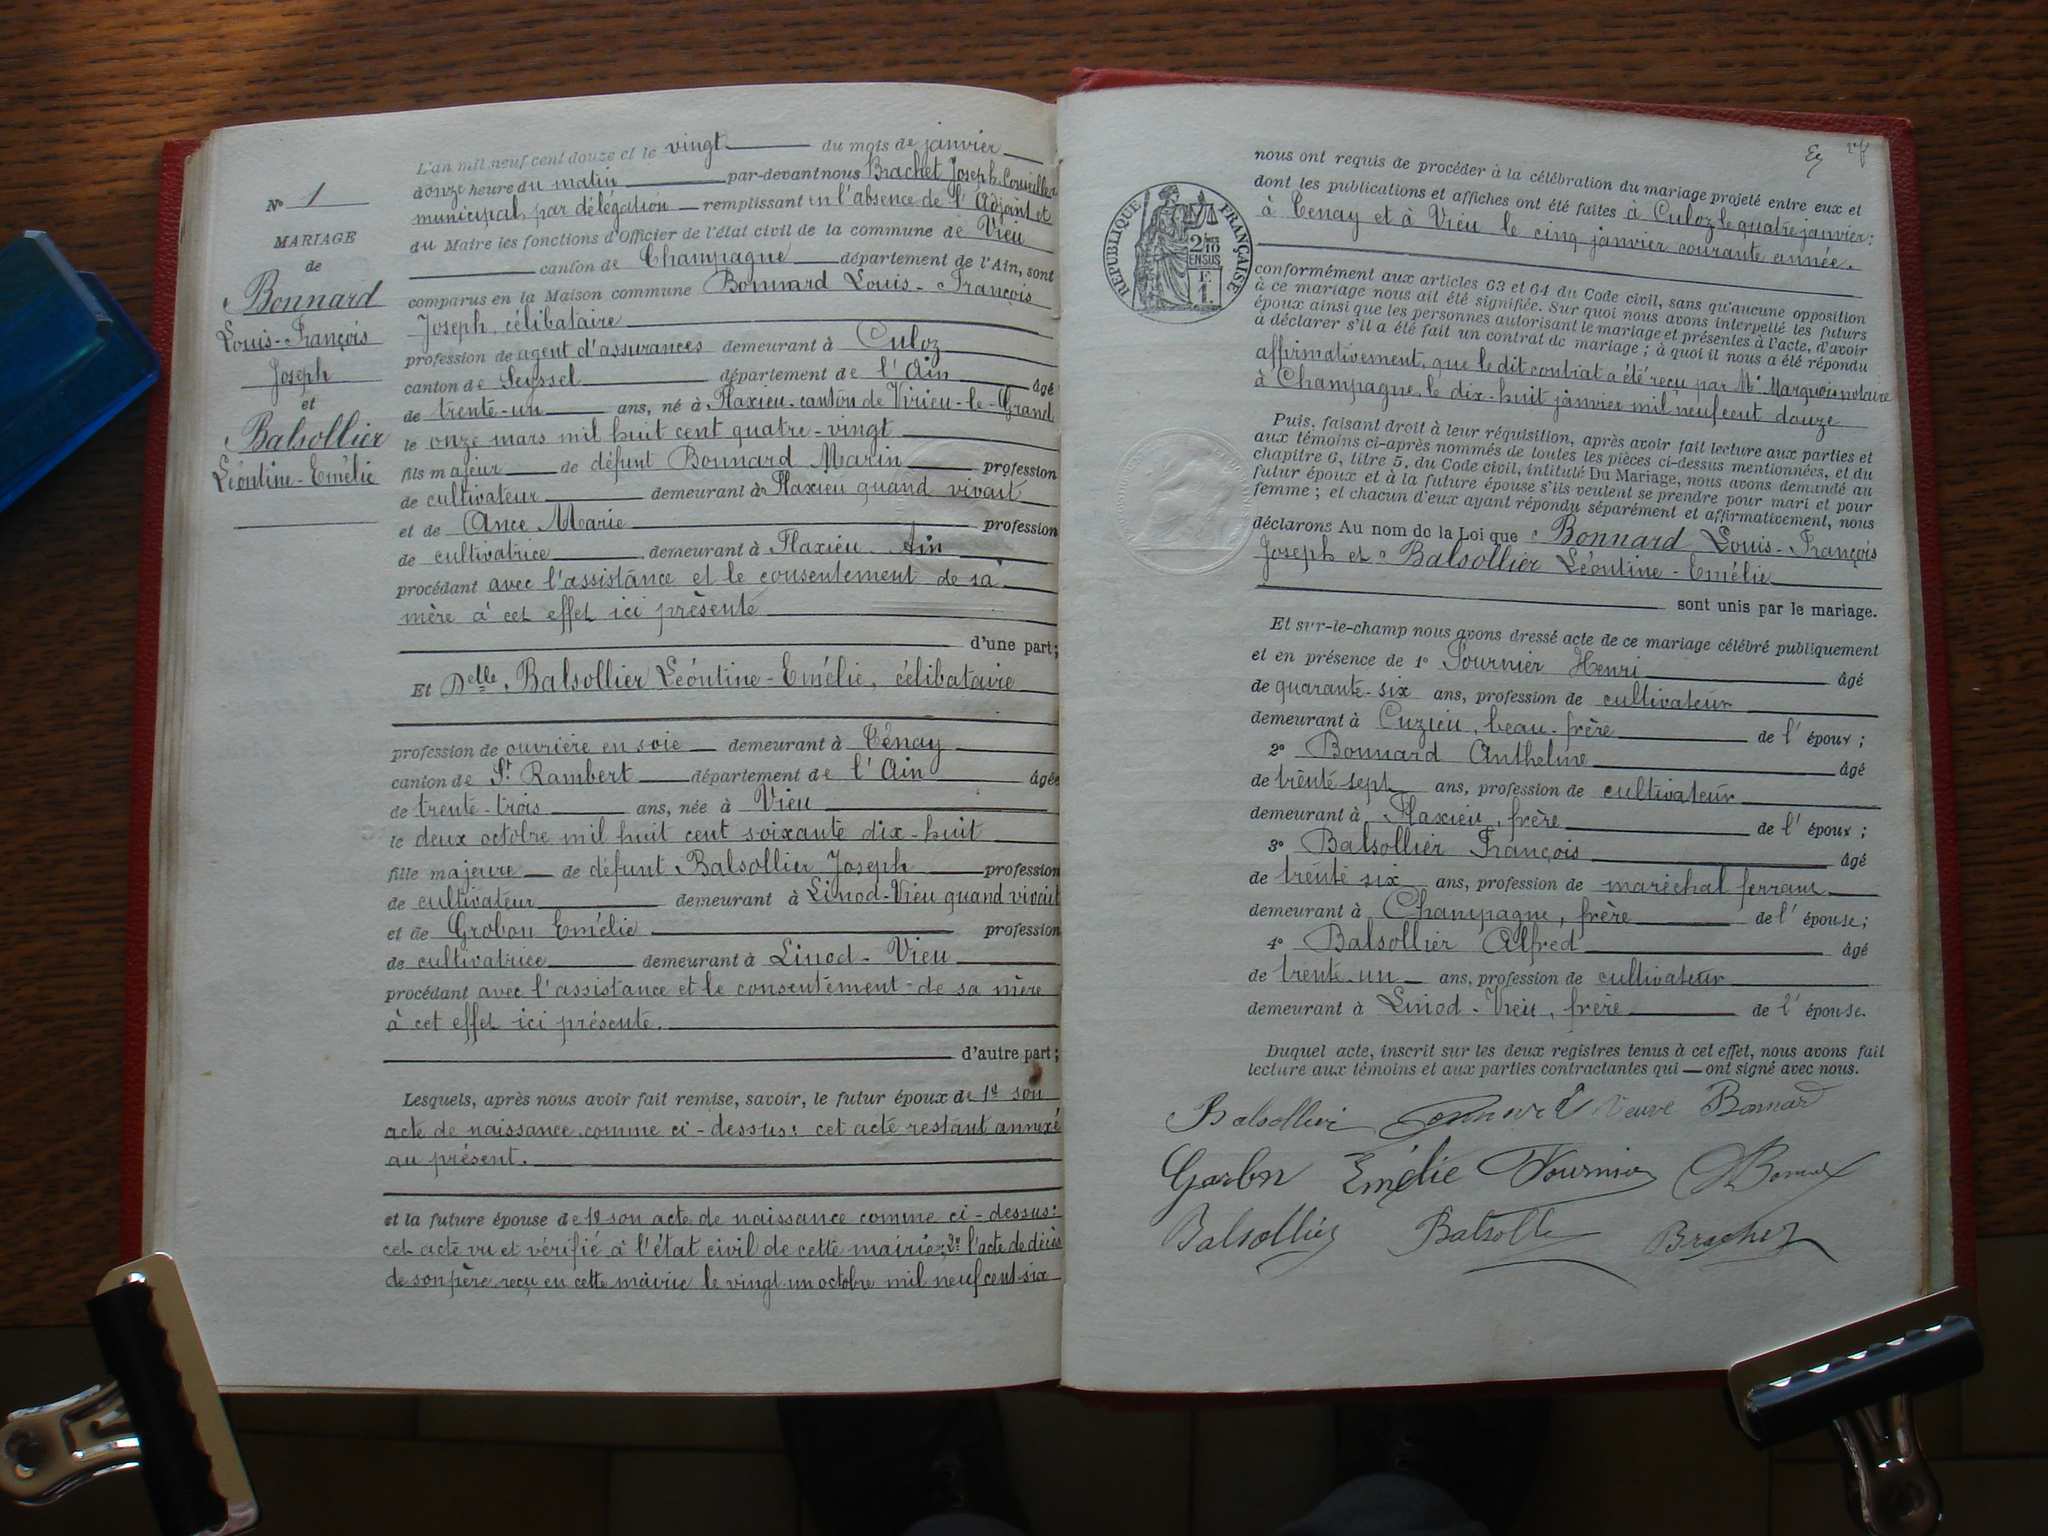 Nº 1
MARIAGE
de
Bonnard
Louis-François
Joseph
et
Balsollier
Léontine-Emélie
L'an mil neuf cent douze et le vingt du mois de janvier
donze heure du matin par-devant nous Brachet Joseph Conseiller
municipal, par délégation remplissant en l'absence de l'Adjoint et
du Maire les fonctions d'Officier de l'état civil de la commune de Vieu
canton de Champagne département de l'Ain, sont
comparus en la Maison commune Bonnard Louis-François
Joseph, célibataire
profession de agent d'assurances demeurant à Culoz
canton de Seyssel département de l'Ain âgé
de trente-un ans, né à Flaxieu, canton de Virieu-le-Grand
le onze mars mil huit cent quatre-vingt
fils majeur de défunt Bonnard Marin profession
de cultivateur demeurant à Flaxieu quand vivait
et de Ance Marie profession
de cultivatrice demeurant à Flaxieu Ain
procédant avec l'assistance et le consentement de sa
mère à cet effet ici présente
d'une part;
Et Delle Balsollier Léontine-Emélie, célibataire
profession de ouvrière en soie demeurant à Tenay
canton de St Rambert département de l'Ain âgée
de trente-trois ans, née à Vieu
le deux octobre mil huit cent soixante dix-huit
fille majeure de défunt Balsollier Joseph profession
de cultivateur demeurant à Linod-Vieu quand vivait
et de Grobon Emélie profession
de cultivatrice demeurant à Linod-Vieu
procédant avec l'assistance et le consentement de sa mère
à cet effet ici présente.
d'autre part;
Lesquels, après nous avoir fait remise, savoir, le futur époux de 1º son
acte de naissance comme ci-dessus: cet acte restant annexé
au présent.
et la future épouse de 1º son acte de naissance comme ci-dessus:
cet acte vu et vérifié à l'état civil de cette mairie; 2º l'acte de décès
de son père reçu en cette mairie le vingt-un octobre mil neuf cent six
nous ont requis de procéder à la célébration du mariage projeté entre eux et
dont les publications et affiches ont été faites à Culoz le quatre janvier:
à Tenay et à Vieu le cinq janvier courante année.
RÉPUBLIQUE FRANÇAISE
2/10
EN SUS
F
1
conformément aux articles 63 et 64 du Code civil, sans qu'aucune opposition
à ce mariage nous ait été signifiée. Sur quoi nous avons interpellé les futurs
époux ainsi que les personnes autorisant le mariage et présentes à l'acte, d'avoir
à déclarer s'il a été fait un contrat de mariage; à quoi il nous a été répondu
affirmativement, que le dit contrat a été reçu par Me Marguois notaire
à Champagne, le dix-huit janvier mil neuf cent douze
Puis, faisant droit à leur réquisition, après avoir fait lecture aux parties et
aux témoins ci-après nommés de toutes les pièces ci-dessus mentionnées, et du
chapitre 6, titre 5, du Code civil, intitulé Du Mariage, nous avons demandé au
futur époux et à la future épouse s'ils veulent se prendre pour mari et pour
femme; et chacun d'eux ayant répondu séparément et affirmativement, nous
déclarons Au nom de la Loi que Bonnard Louis-François
Joseph et Balsollier Léontine-Emélie
sont unis par le mariage.
Et sur-le-champ nous avons dressé acte de ce mariage célébré publiquement
et en présence de 1º Fournier Henri âgé
de quarante-six ans, profession de cultivateur
demeurant à Cuzieu, beau-frère de l'époux;
2º Bonnard Anthelme âgé
de trente sept ans, profession de cultivateur
demeurant à Flaxieu, frère de l'époux;
3º Balsollier François âgé
de trente six ans, profession de maréchal ferrant
demeurant à Champagne, frère de l'épouse;
4º Balsollier Alfred âgé
de trente-un ans, profession de cultivateur
demeurant à Linod-Vieu, frère de l'épouse.
Duquel acte, inscrit sur les deux registres tenus à cet effet, nous avons fait
lecture aux témoins et aux parties contractantes qui — ont signé avec nous.
Balsollier Bonnard Veuve Bonnard
Gorbon Emélie Fournier A Bonnard
Balsollier Balsollier Brachet